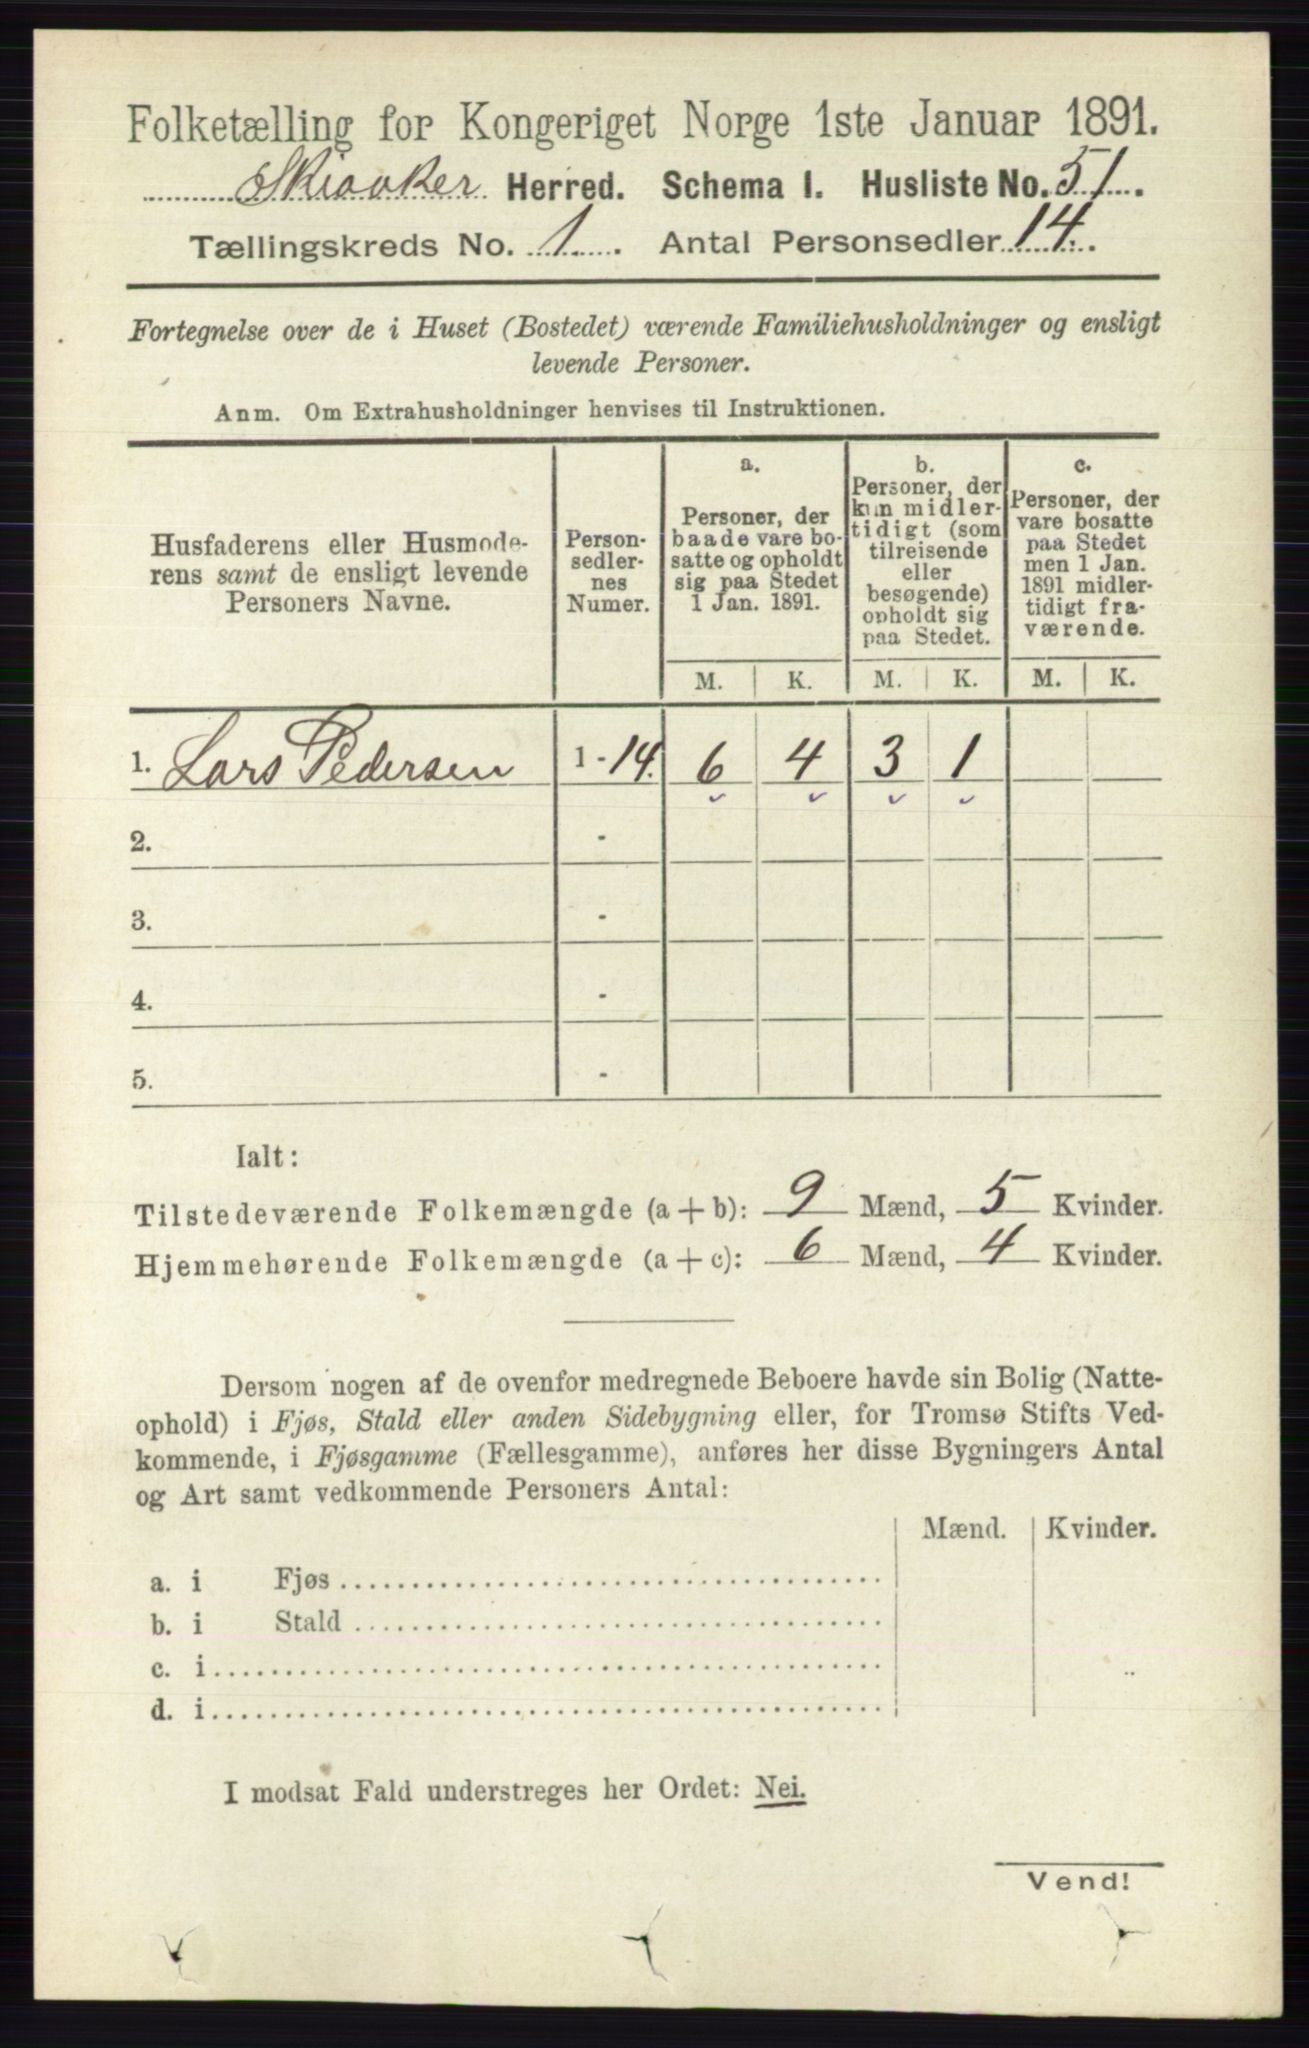 Folketælling for Kongeriget Norge 1ste Januar 1891.
Skiaaker Herred. Schema I. Husliste No. 51.
Tællingskreds No. 1. Antal Personsedler 14.
Fortegnelse over de i Huset (Bostedet) værende Familiehusholdninger og ensligt
levende Personer.
Anm. Om Extrahusholdninger henvises til Instruktionen.
Husfaderens eller Husmode-
rens samt de ensligt levende
Personers Navne.
Person-
sedler-
nes
Numer.
a.
Personer, der
baade vare bo-
satte og opholdt
sig paa Stedet
1 Jan. 1891.
b.
Personer, der
kun midler-
tidigt (som
tilreisende
eller
besøgende)
opholdt sig
paa Stedet.
c.
Personer, der
vare bosatte
paa Stedet
men 1 Jan.
1891 midler-
tidigt fra-
værende.
M. K. M. K. M. K.
1. Lars Pedersen 1 - 14. 6 4 3 1
2. -
3. -
4. -
5. -
Ialt:
Tilstedeværende Folkemængde (a + b): 9 Mænd, 5 Kvinder.
Hjemmehørende Folkemængde (a + c): 6 Mænd, 4 Kvinder.
Dersom nogen af de ovenfor medregnede Beboere havde sin Bolig (Natte-
ophold) i Fjøs, Stald eller anden Sidebygning eller, for Tromsø Stifts Ved-
kommende, i Fjøsgamme (Fællesgamme), anføres her disse Bygningers Antal
og Art samt vedkommende Personers Antal:
Mænd. Kvinder.
a. i Fjøs
b. i Stald
c. i
d. i
I modsat Fald understreges her Ordet: Nei.
Vend!